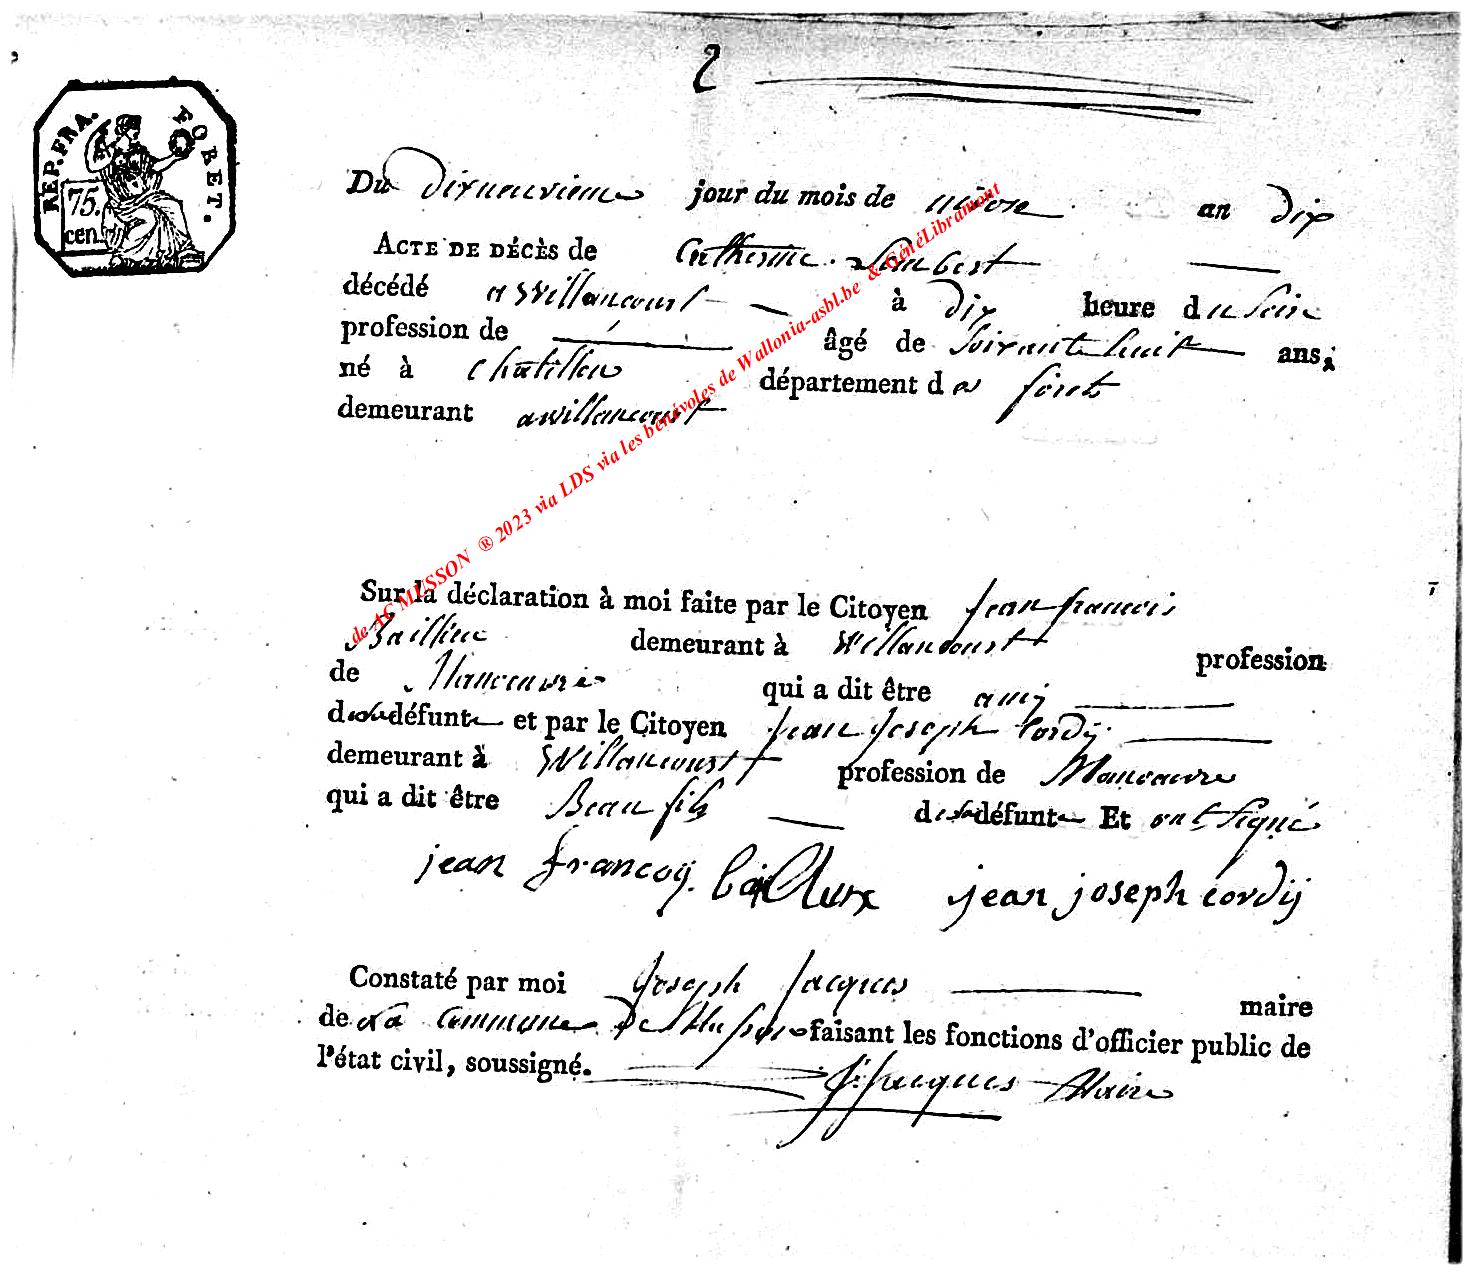 2
REP. FRA. FORET.
75.
cen.
Du dixneuvieme jour du mois de nivose an dix
ACTE DE DÉCÈS de Catherine Lambert
décédé a Willancourt à dix heure du soir
profession de âgé de soixante huit ans;
né à Chatillon département de forets
demeurant a willancourt
Sur la déclaration à moi faite par le Citoyen jean françois
Baillieu demeurant à Willancourt profession
de Manouvre qui a dit être amij
de la défunte et par le Citoyen jean joseph Cordij
demeurant à Willancourt profession de Manoeuvre
qui a dit être Beau fils de la défunte Et ont signé
jean francoij bailleux jean joseph cordij
Constaté par moi Joseph Jacques maire
de la Commune De Musson faisant les fonctions d'officier public de
l'état civil, soussigné. J. Jacques Maire
de AC MUSSON ® 2023 via LDS via les bénévoles de Wallonia-asbl.be & GénéLibramont